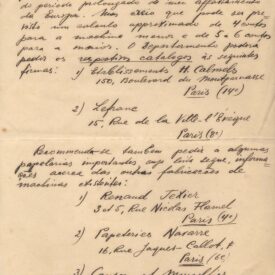 de periodo prolongado de meu affastamento
da Europa. Meu exito que pode ser pre-
visto um calculo approximado de 4 contos
para a machina menor e de 5 a 6 contos
para a maior. O Departamento poderá
pedir os respectivos catalogos às seguintes
formas:
1) Etablissements H. Calmels
150, Boulevard du Montparnasse
Paris (14e)
2) Lefranc
15, Rue de la Ville l'Evêque
Paris (8e)
Recommenda-se tambem pedir a algumas
papelarias importantes cuja lista segue, informa-
ções acerca das outras fabricações de
machinas existentes:
1) Renaud Texier
3 et 5, Rue Nicolas Flamel
Paris (4e)
2) Papeteries Navarre
16, Rue Jaques Callot,
Paris (6e)
3)